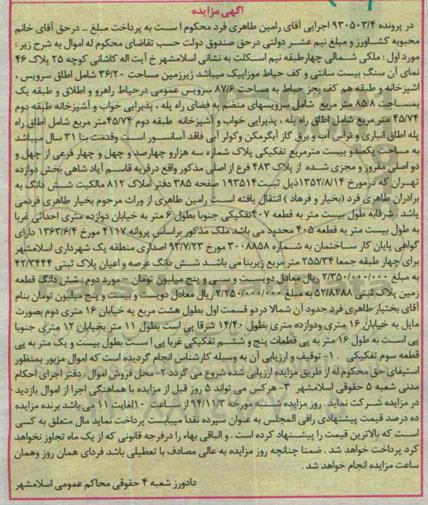 آگهی مزایده
در پرونده ۹۳۰۵۰۳/۴ اجرایی آقای رامین طاهری فرد محکوم است به پرداخت مبلغ ... درحق آقای خانم
محبوبه کشاورز و مبلغ نیم عشر دولتی درحق صندوق دولت حسب تقاضای محکوم له اموال به شرح زیر :
مورد اول : ملکی شمالی چهارطبقه نیم اسکلت به نشانی اسلامشهر خ آیت اله کاشانی کوچه ۲۵ پلاک ۴۶
نمای آن سنگ بیست سانتی و کف حیاط موزاییک میباشد زیرزمین مساحت ۳۶/۲۰ شامل اطاق سرویس ،
آشپزخانه و طبقه هم کف بجز حیاط به مساحت ۸۷/۶ سرویس عمومی درحیاط راهرو و اطلاق و طبقه یک
بمساحت ۸۵/۸ متر مربع شامل سرویسهای منضم به فضای راه پله ، پذیرایی خواب و آشپزخانه طبقه دوم
۴۵/۷۴ متر مربع شامل اطاق راه پله ، پذیرایی خواب و آشپزخانه طبقه دوم ۴۵/۷۴ متر مربع شامل اطاق راه
پله اطاق انباری و تراس آب و برق گاز آبگرمکن وکولر آبی فاقد آسانسور است وقدمت بنا ۳۱ سال میباشد
به مساحت یکصدو بیست مترمربع تفکیکی پلاک شماره سه هزارو چهارصد و چهل و چهار فرعی از چهل و
دو اصلی مفروز و مجزی شده از پلاک ۴۸۳ فرع از اصلی مذکور واقع درقریه قاسم آباد شاهی بخش دوازده
تهران که درمورخ ۱۳۵۲/۸/۱۴ذیل ثبت۱۹۳۵۱۴ صفحه ۳۸۵ دفتر املاک ۸۱۲ مالکیت شش دانگ به
برادران طاهری فرد (بختیار و فرهاد ) انتقال یافته است رامین طاهری از وراث مرحوم بختیار طاهری فردمی
باشد شرقابه طول بیست متر به قطعه ۴۰۷تفکیکی جنوبا بطول ۶ متر به خیابان دوازده متری احداثی غربا
به طول بیست متر به قطعه ۴۰۵ محدود می باشد ملک مذکور براساس پروانه ۴۱۱۷ مورخ ۱۳۶۳/۶/۴ دارای
گواهی پایان کار ساختمان به شماره ۳۰۰۸۸۵۸ مورخ ۹۳/۷/۲۳ اصداری منطقه یک شهرداری اسلامشهر
برای چهار طبقه جمعا ۲۵۵/۳۴ متر مربع زیربنا می باشد شش دانگ عرصه و اعیان پلاک ثبتی ۴۲/۳۴۴۴
به مبلغ ۲/۳۵۰/۰۰۰/۰۰۰ ریال معادل دویست و سی و پنج میلیون تومان . مورد دوم : شش دانگ قطعه
زمین پلاک ثبتی ۵۲/۸۴۸۸ به مبلغ ۲/۲۵۰/۰۰۰/۰۰۰ ریال معادل دویست و بیست و پنج میلیون تومان بنام
آقای بختیار طاهری فرد حدود آن شمالا در دو قسمت اول بطول هشت مربع به خیابان ۱۶ متری دوم بصورت
مایل به خیابان ۱۶ متری ودوازده متری بطول ۱۴/۴۰ شرقا پی است بطول ۱۱ متر بخیابان ۱۲ متری جنوبا
پی است به طول ۱۶ متر به پی قطعات پنج و ششم تفکیکی غربا پی است بطول بیست و یک متر به پی
قطعه سوم تفکیکی . ۱- توقیف و ارزیابی آن به وسیله کارشناس انجام گردیده است که اموال مزبور بمنظور
استیفای حق محکوم له از طریق مزایده ارزیابی شده شروع می گردد ۲- محل فروش اموال : دفتر اجرای احکام
مدنی شعبه ۵ حقوقی اسلامشهر ۳- هرکس می تواند ۵ روز قبل از مزایده با هماهنگی اجرا از اموال بازدید
در مزایده شرکت نماید . روز مزایده شنبه مورخه ۹۴/۱۱/۳ از ساعت ۱۰ الغایت ۱۱ می باشد برنده مزایده
ده درصد قیمت پیشنهادی رافی المجلس به عنوان سپرده نقدا میبایست پرداخت نماید مال متعلق به کسی
است که بالاترین قیمت را پیشنهاد کرده است . و الباقی بهاء را درفرجه قانونی که از یک ماه تجاوز نخواهد
کرد پرداخت خواهد شد . ضمنا چنانچه روز مزایده به عللی مصادف با تعطیلی باشد فردای همان روز وهمان
ساعت مزایده انجام خواهد شد .
دادورز شعبه ۴ حقوقی محاکم عمومی اسلامشهر